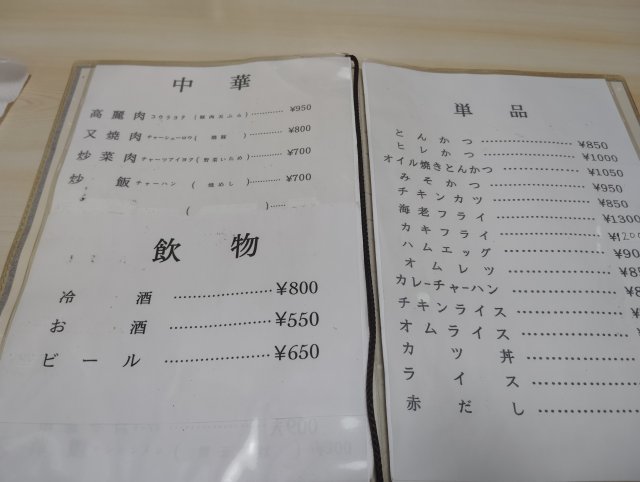 中華
高麗肉 コウリヨク (豚肉天ぷら) ............ ¥950
又焼肉 チャーシューロウ ( ) ............ ¥800
炒菜肉 チャーツアイヨク (野菜いため) ............ ¥700
炒飯 チャーハン (焼めし) ............ ¥700
( ) ......
飲物
冷酒 ........................ ¥800
お酒 ........................ ¥550
ビール ........................ ¥650
単品
とんかつ ........................ ¥850
ヒレかつ ........................ ¥1000
オイル焼きとんかつ ........................ ¥1050
みそかつ ........................ ¥950
チキンカツ ........................ ¥850
海老フライ ........................ ¥1300
カキフライ ........................ ¥1200
ハムエッグ ........................ ¥90
オムレツ ........................ ¥85
カレーチャーハン ........................ ¥8
チキンライス ........................ ¥
オムライス ........................ ¥
カツ丼 ........................
ライス ........................
赤だし ........................